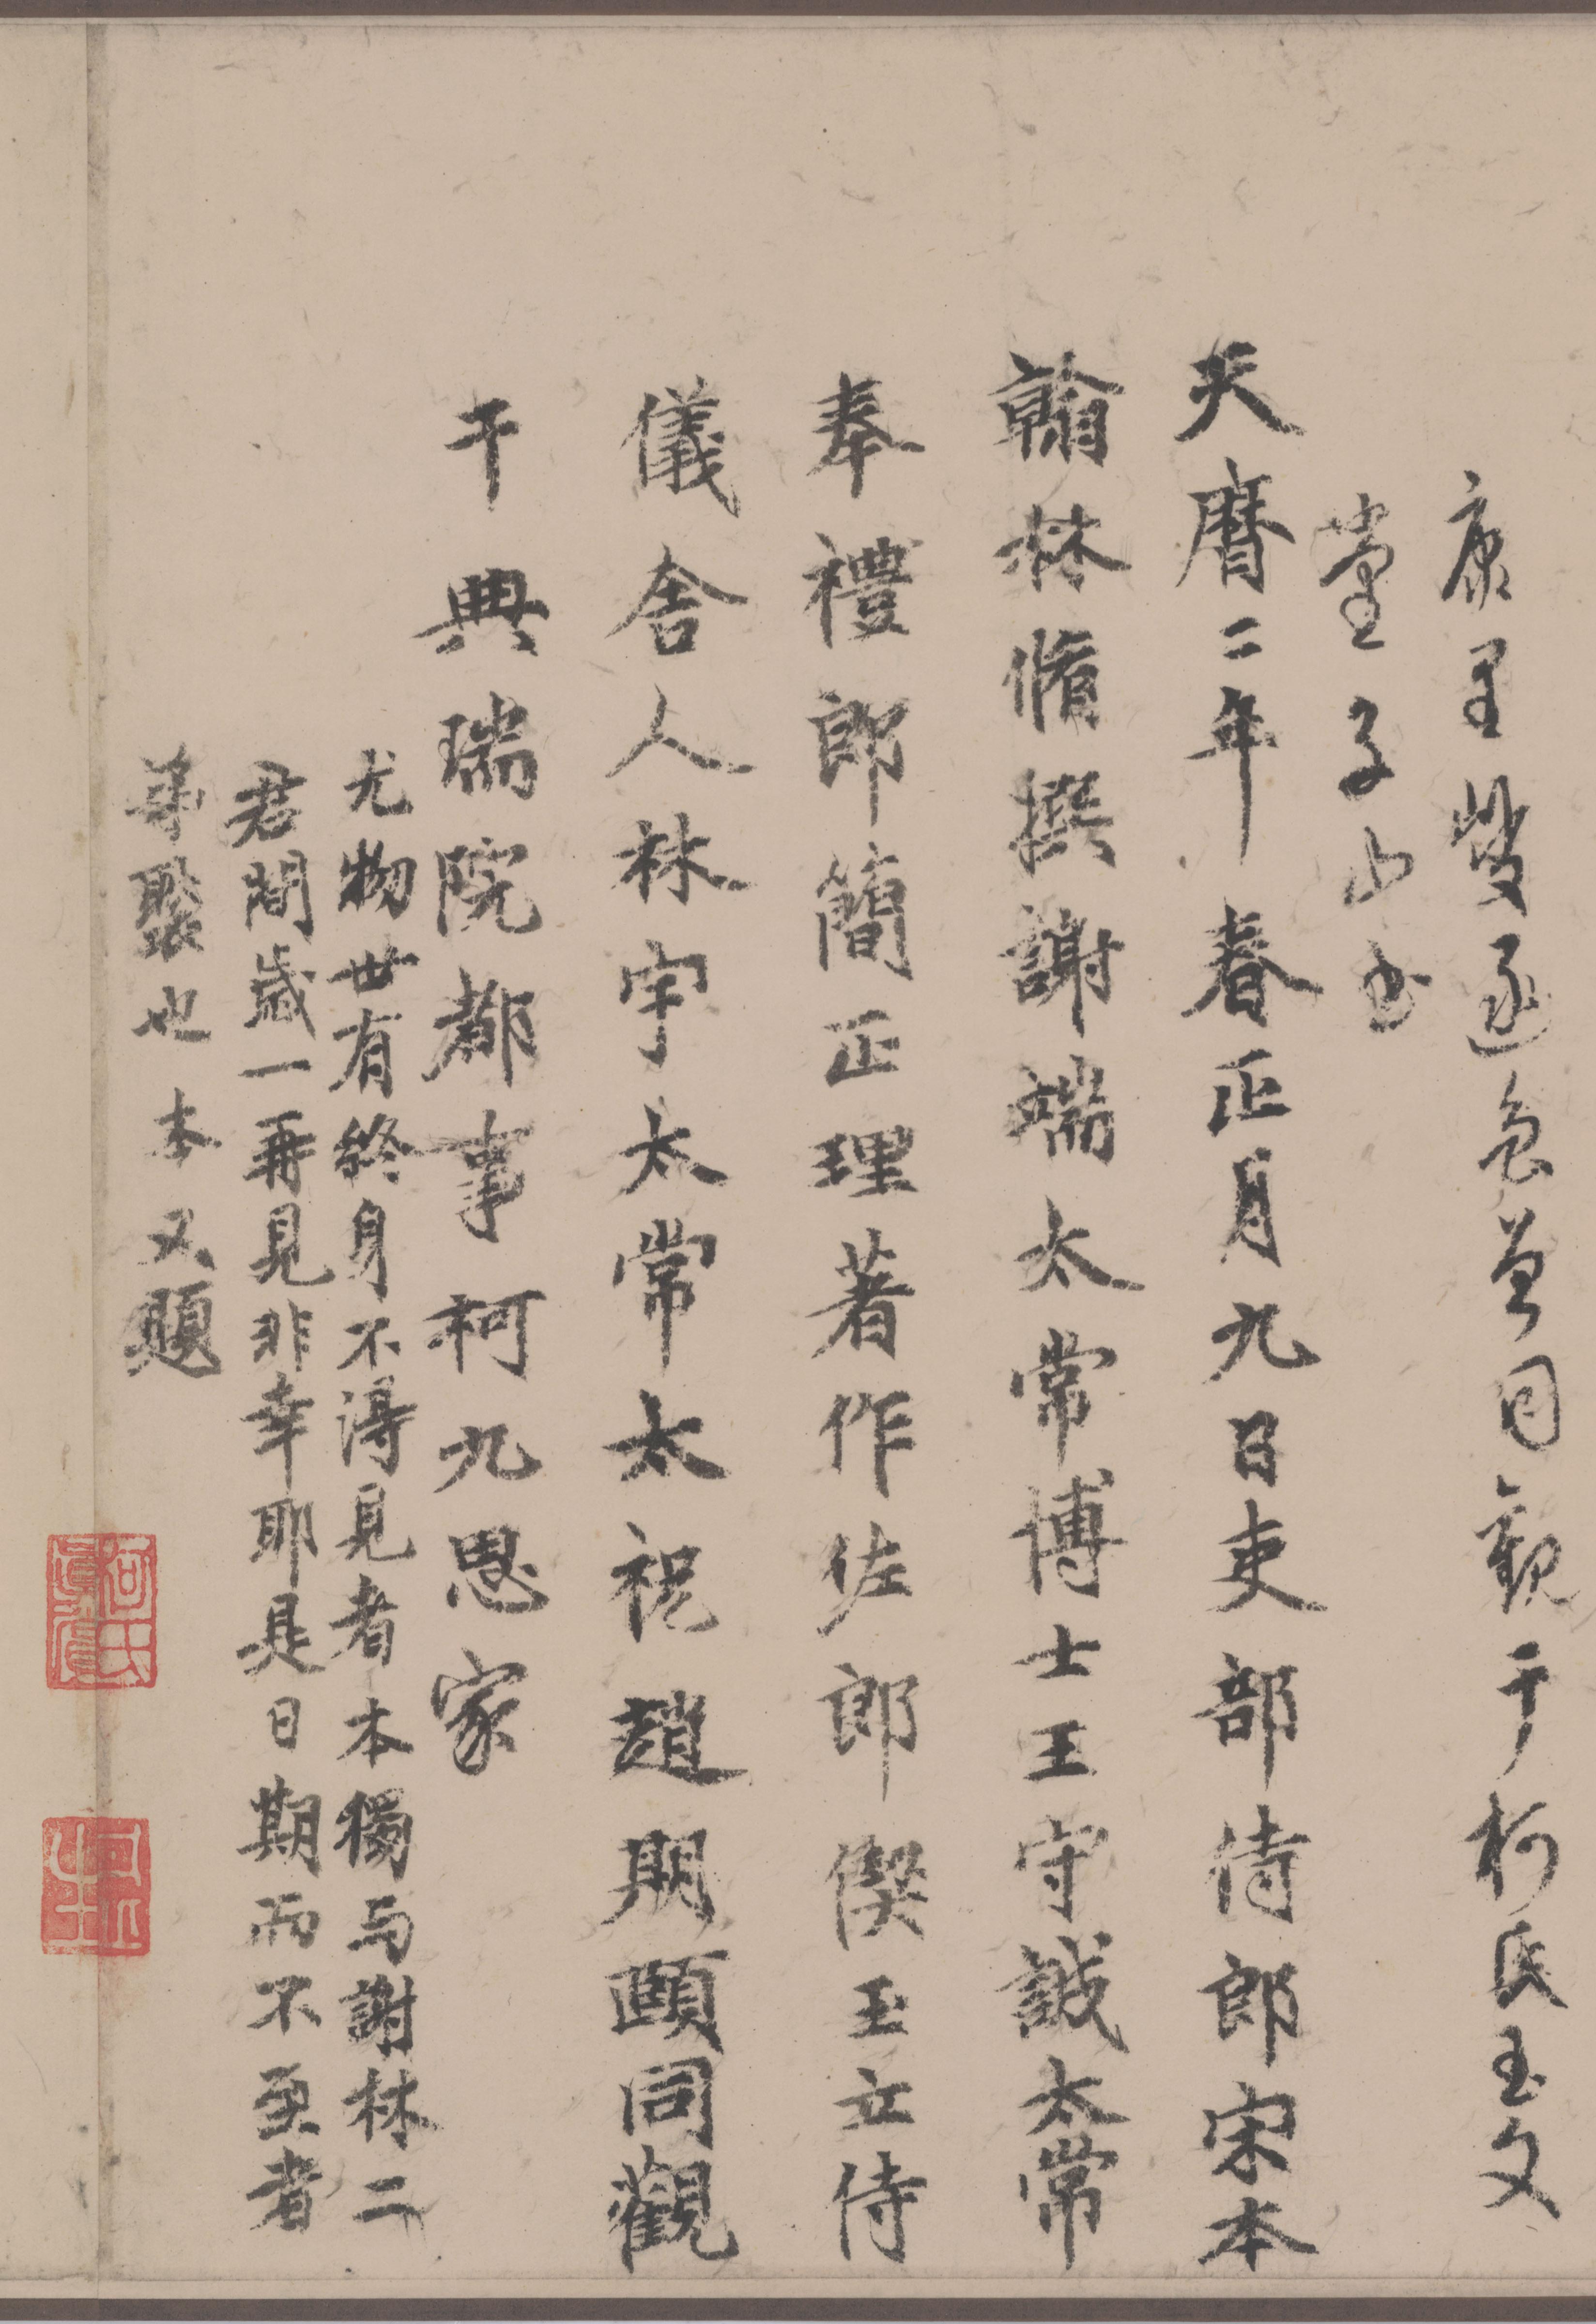 康里巙遂急等同觀于柯氏玉文
堂子山書
天曆二年春正月九日吏部侍郎宋本
翰林脩撰謝端太常博士王守誠太常
奉禮郎簡正理著作佐郎偰玉立侍
儀舍人林宇太常太祝趙期頤同觀
于典瑞院都事柯九思家
尤物世有終身不得見者本獨与謝林二
君間歲一再見非幸耶是日期而不至者
也本又題
柯氏真賞